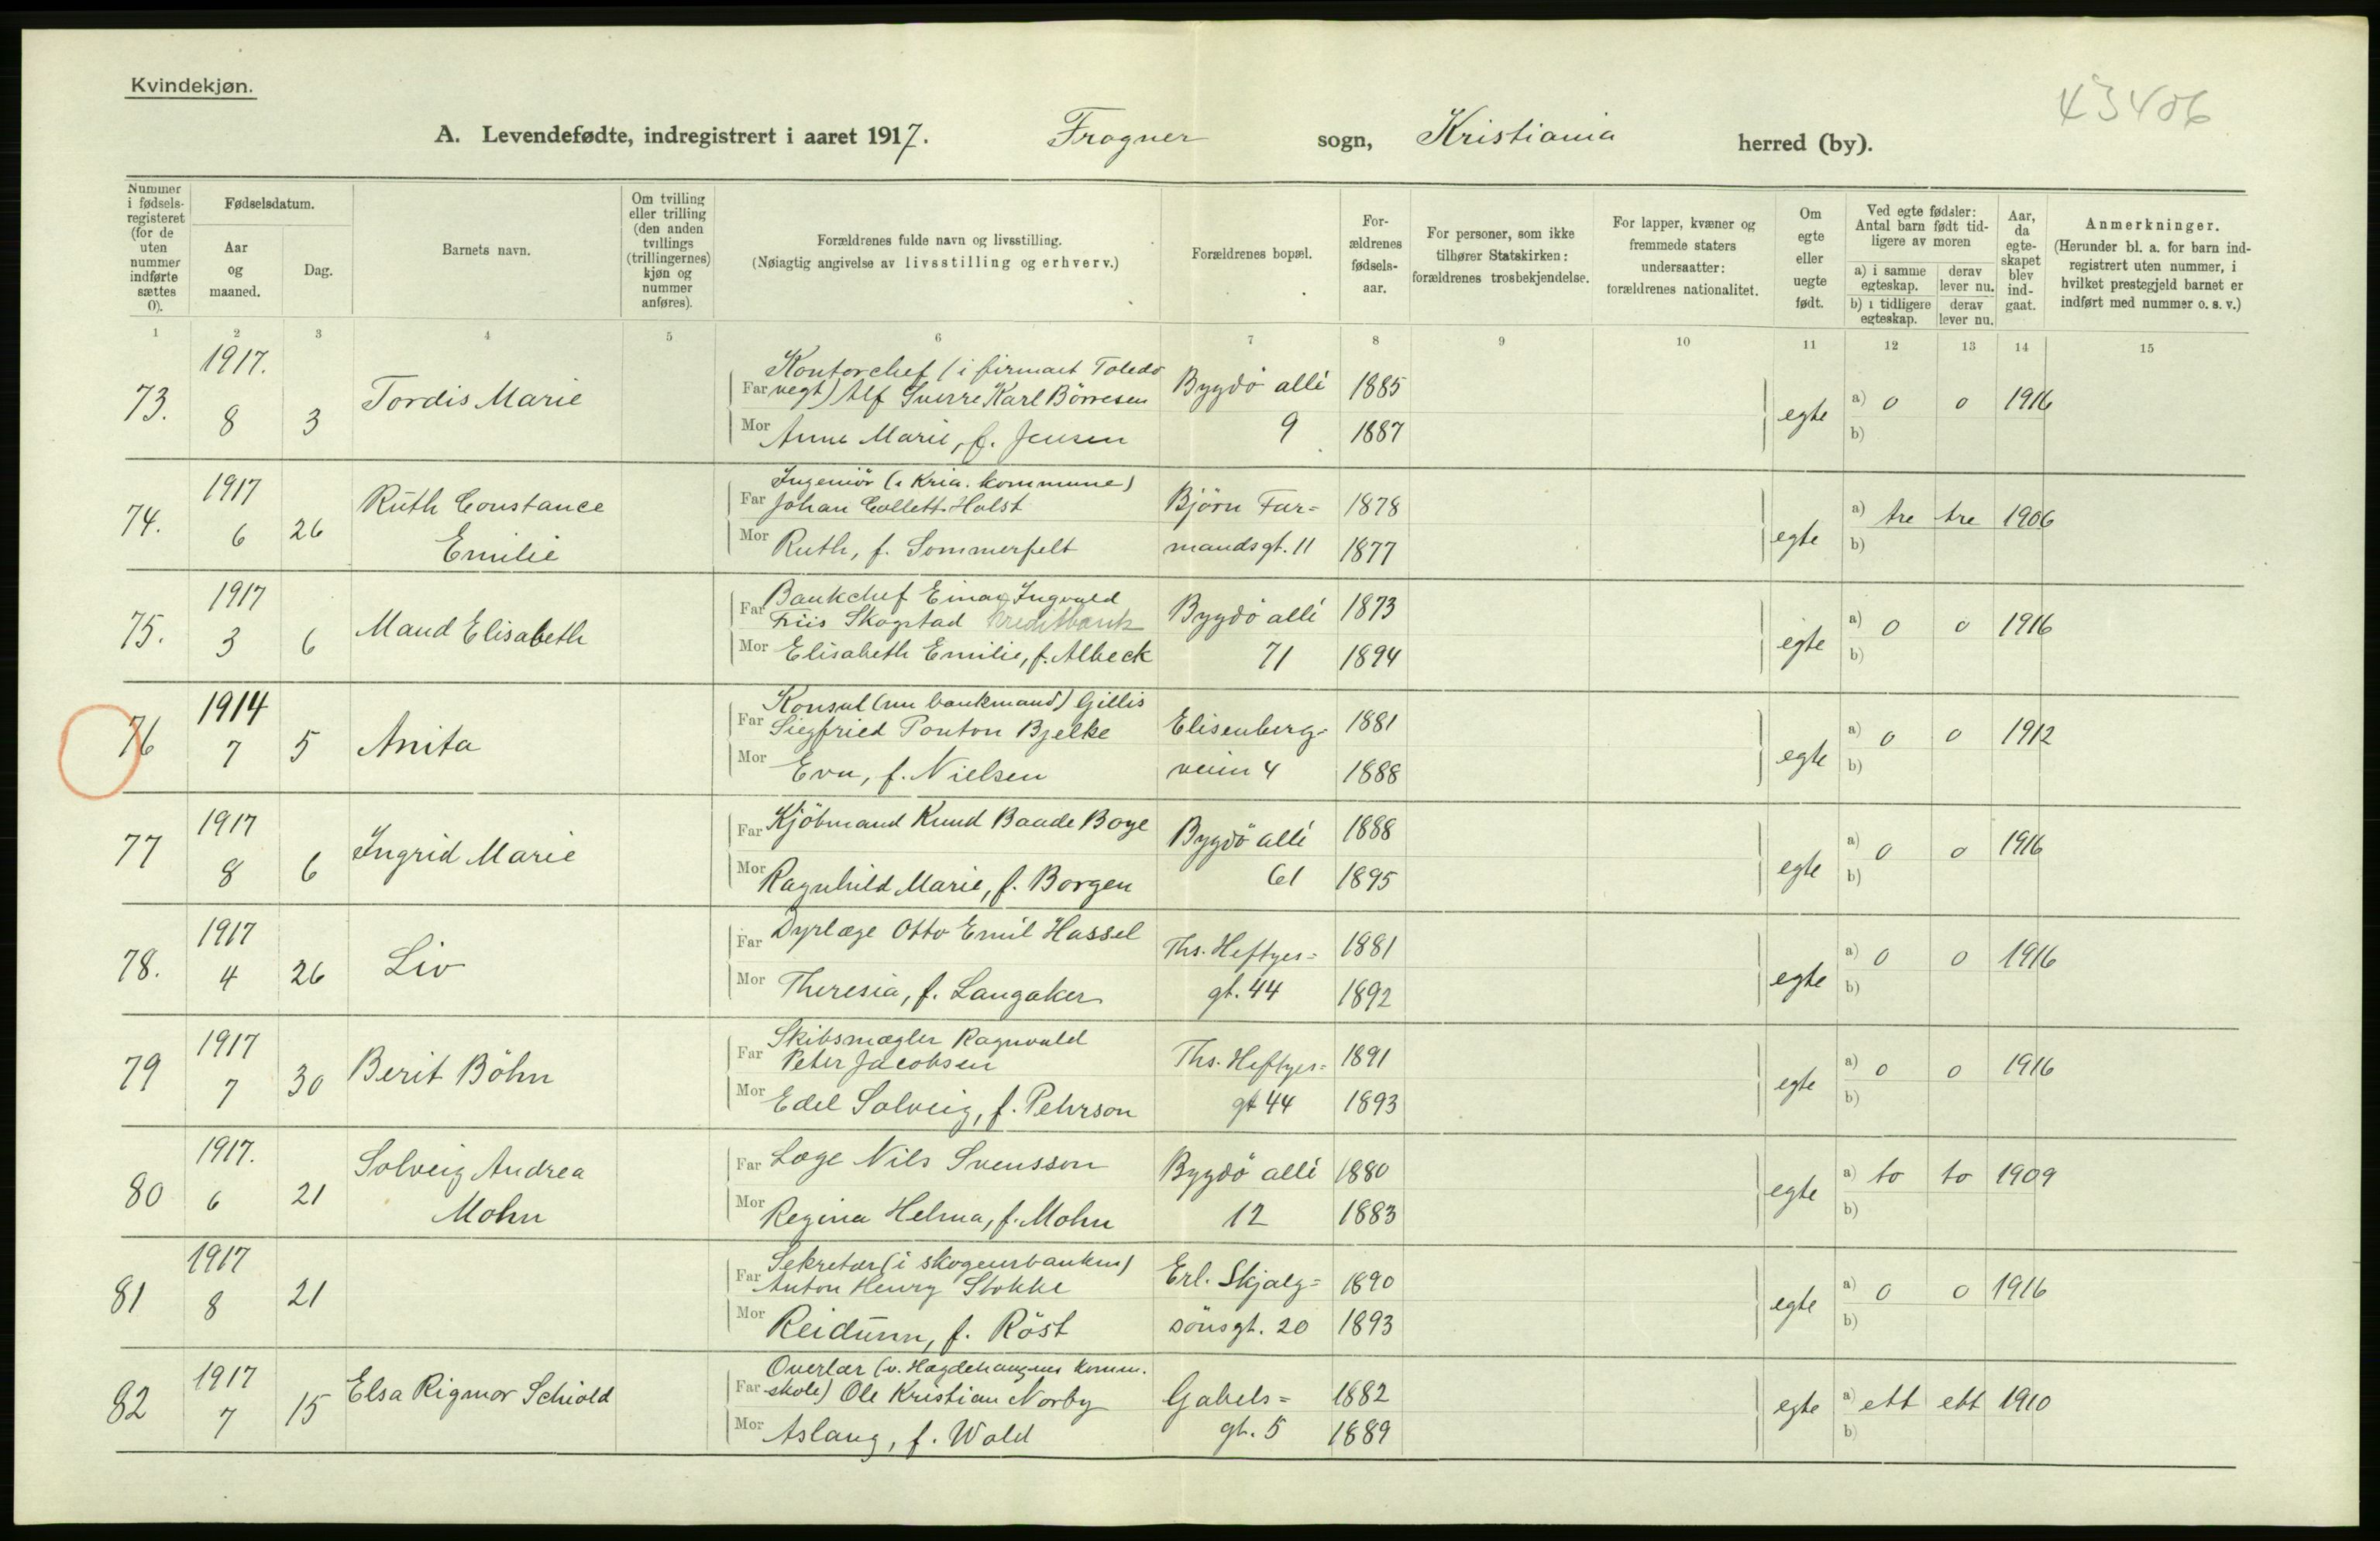 Kvindekjøn.
43406
A. Levendefødte, indregistrert i aaret 1917. Frogner sogn, Kristiania herred (by).
Nummer i fødselsregisteret (for de uten nummer indførte sættes 0).
Fødselsdatum.
Aar og maaned.
Dag.
Barnets navn.
Om tvilling eller trilling (den anden tvillings (trillingernes) kjøn og nummer anføres).
Forældrenes fulde navn og livsstilling.
(Nøiagtig angivelse av livsstilling og erhverv.)
Forældrenes bopæl.
Forældrenes fødselsaar.
For personer, som ikke tilhører Statskirken: forældrenes trosbekjendelse.
For lapper, kvæner og fremmede staters undersaatter: forældrenes nationalitet.
Om egte eller uegte født.
Ved egte fødsler: Antal barn født tidligere av moren
a) i samme egteskap. derav lever nu.
b) i tidligere egteskap. derav lever nu.
Aar, da egteskapet blev indgaat.
Anmerkninger.
(Herunder bl. a. for barn indregistrert uten nummer, i hvilket prestegjeld barnet er indført med nummer o. s. v.)
1 2 3 4 5 6 7 8 9 10 11 12 13 14 15
1917. Kontorchef (i firmaet Toledo
73. 8 3 Tordis Marie Far vegt) Alf Sverre Karl Börresen Bygdö allé 1885 egte a) 0 0 1916
Mor Anne Marie, f. Jensen 9 1887 b)
1917 Ingeniör (i Kria. kommune)
74. 6 26 Ruth Constance Far Johan Collett Holst Björn Far= 1878 egte a) tre tre 1906
Emilie Mor Ruth, f. Sommerfelt mandsgt. 11 1877 b)
1917 Bankchef Einar Ingvald
75. 3 6 Maud Elisabeth Far Friis Skogstad Kreditbank Bygdö allé 1873 egte a) 0 0 1916
Mor Elisabeth Emilie, f. Albeck 71 1894 b)
1914 Konsul (nu bankmand) Gillis
76 7 5 Anita Far Siegfried Ponton Bjelke Elisenberg- 1881 egte a) 0 0 1912
Mor Eva, f. Nielsen veien 4 1888 b)
1917
77 8 6 Ingrid Marie Far Kjöbmand Knud Baade Boye Bygdö allé 1888 egte a) 0 0 1916
Mor Ragnhild Marie, f. Borgen 61 1895 b)
1917
78. 4 26 Liv Far Dyrlæge Otto Emil Hassel Ths. Heftyes= 1881 egte a) 0 0 1916
Mor Theresia, f. Langaker gt. 44 1892 b)
1917 Skibsmægler Ragnvald
79 7 30 Berit Böhn Far Peter Jacobsen Ths. Heftyes= 1891 egte a) 0 0 1916
Mor Edel Solveig, f. Pehrson gt 44 1893 b)
1917.
80 6 21 Solveig Andrea Far Læge Nils Svensson Bygdö allé 1880 egte a) to to 1909
Mohn Mor Regina Helma, f. Mohn 12 1883 b)
1917 Sekretær (i skogeierbanken)
81 8 21 Far Anton Henry Stokke Erl. Skjalg= 1890 egte a) 0 0 1916
Mor Reidunn, f. Röst sönsgt. 20 1893 b)
1917 Overlær (v. Hægdehaugens komm.
82 7 15 Elsa Rigmor Schiold Far -skole) Ole Kristian Norby Gabels= 1882 egte a) ett ett 1910
Mor Aslaug, f. Wold gt. 5 1889 b)